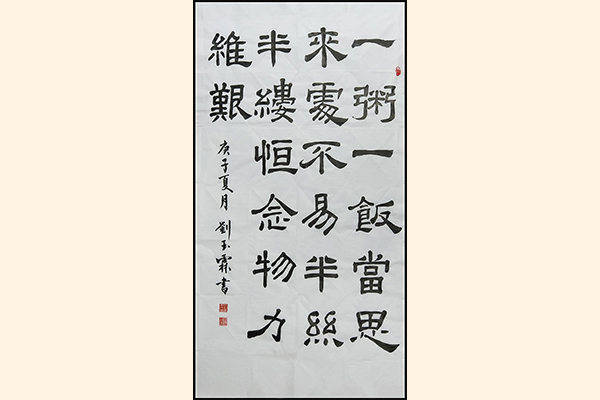 一粥一飯當思
來處不易半絲
半縷恒念物力
維艱
庚子夏月 劉玉霖書